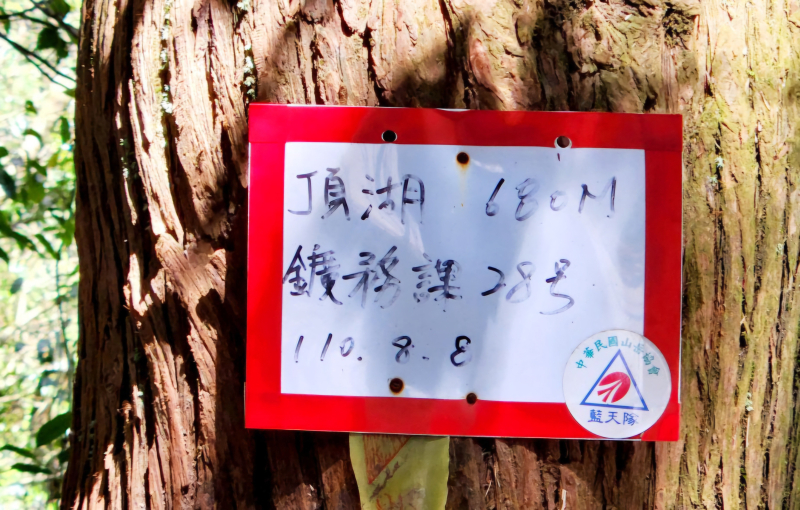 頂湖 680M
鑛務課28号
110.8.8
中華民國山岳協會
藍天隊